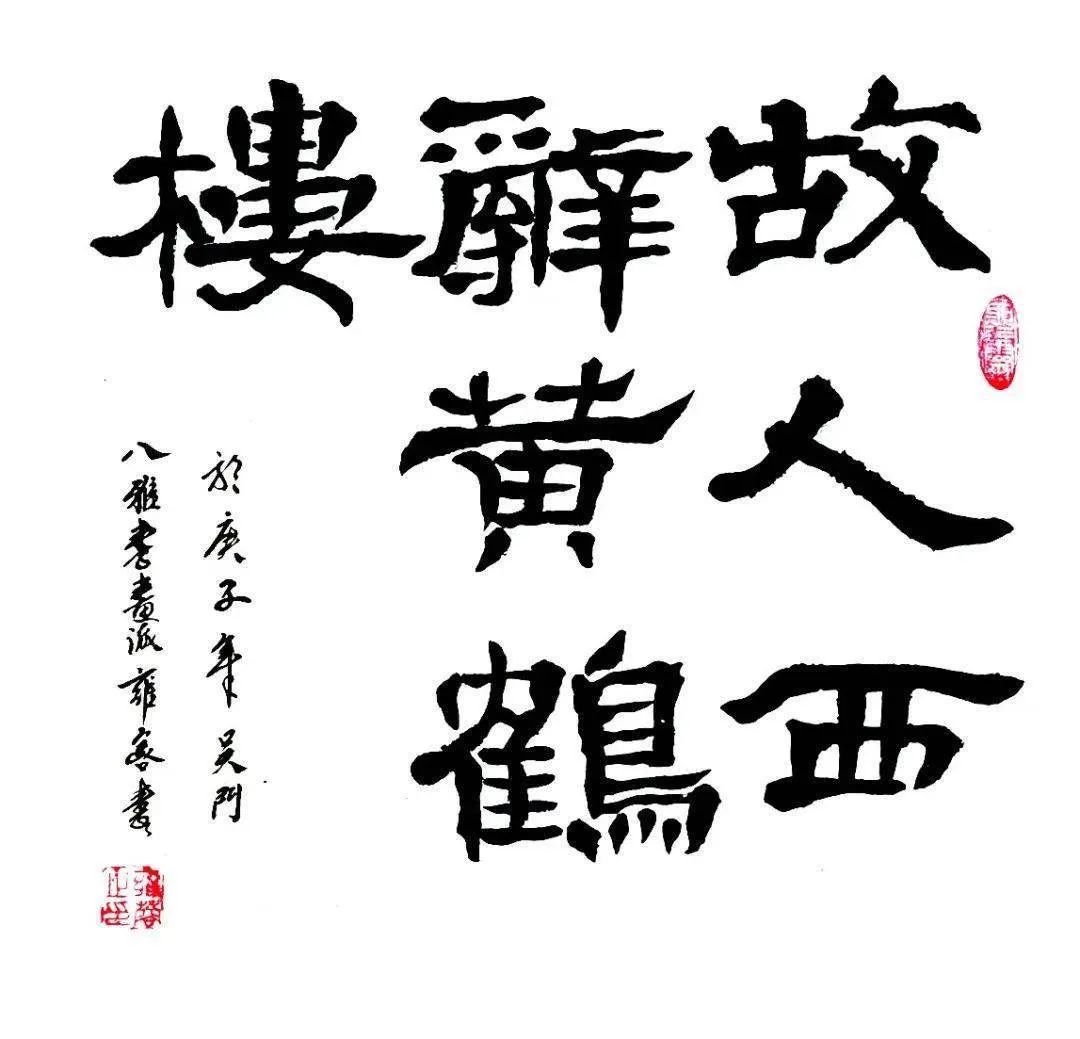 故人西
辭黄鶴
樓
於庚子年吴門
八雅書畫派雍客書